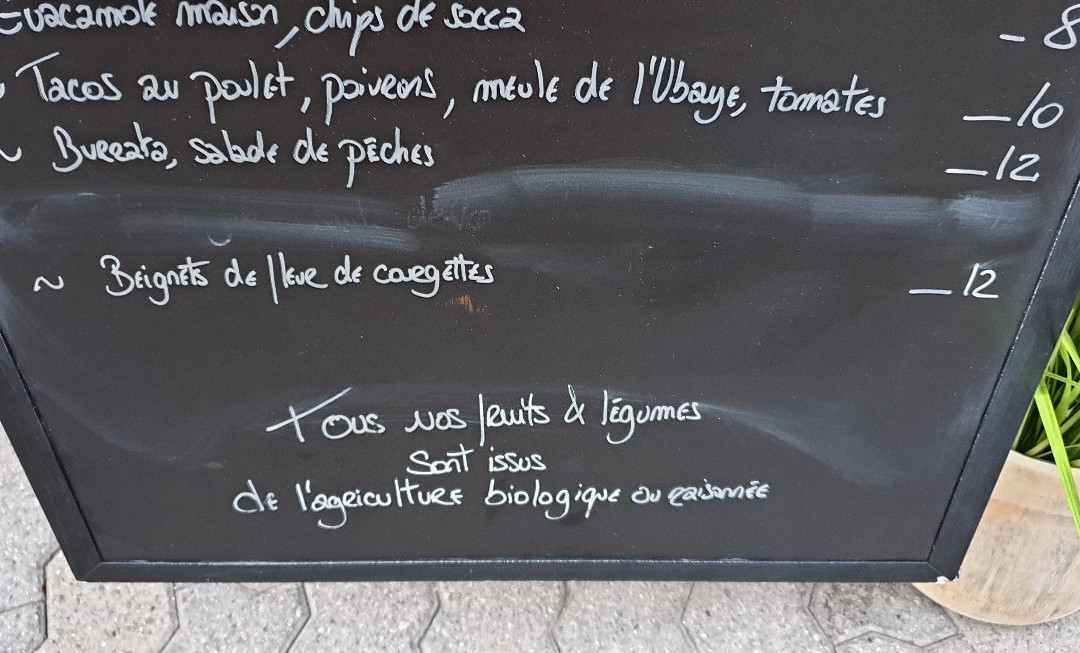 Guacamole maison, chips de socca _ 8
~ Tacos au poulet, poivrons, meule de l'Ubaye, tomates _ 10
~ Burrata, salade de pêches _ 12
~ Beignets de fleur de courgettes _ 12
Tous nos fruits & légumes
Sont issus
de l'agriculture biologique ou raisonnée